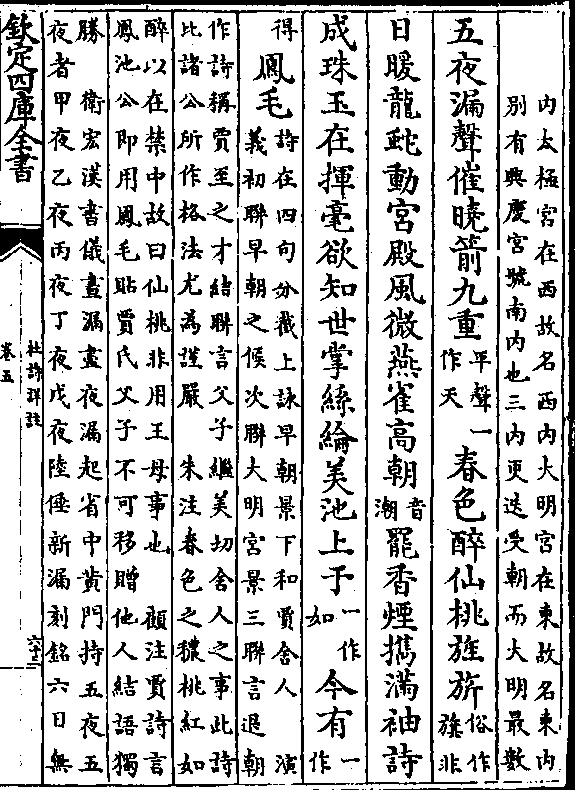 内太極宫在西故名西内大明宫在東故名東内
别有興慶宫號南内也三内更迭受朝而大明最數
五夜漏聲催曉箭九重平聲一作天春色醉仙桃旌旂俗作旗非
日暖龍蛇動宮殿風微燕雀高朝音潮罷香煙擕滿袖詩
成珠玉在揮毫欲知世掌絲綸美池上于一作如今有一作
得鳳毛詩在四句分截上詠早朝景下和賈舍人 演
義初聯早朝之候次聯大明宫景三聯言退朝
作詩稱賈至之才結聯言父子繼美切舍人之事此詩
比諸公所作格法尤為謹嚴 朱注春色之穠桃紅如
醉以在禁中故曰仙桃非用王母事也 顧注賈詩言
鳳池公即用鳳毛貼賈氏父子不可移贈他人結語獨
勝 衛宏漢書儀晝漏盡夜漏起省中黄門持五夜五
夜者甲夜乙夜丙夜丁夜戊夜陸倕新漏刻銘六日無
欽定四庫全書
杜詩詳註
卷五
六十三